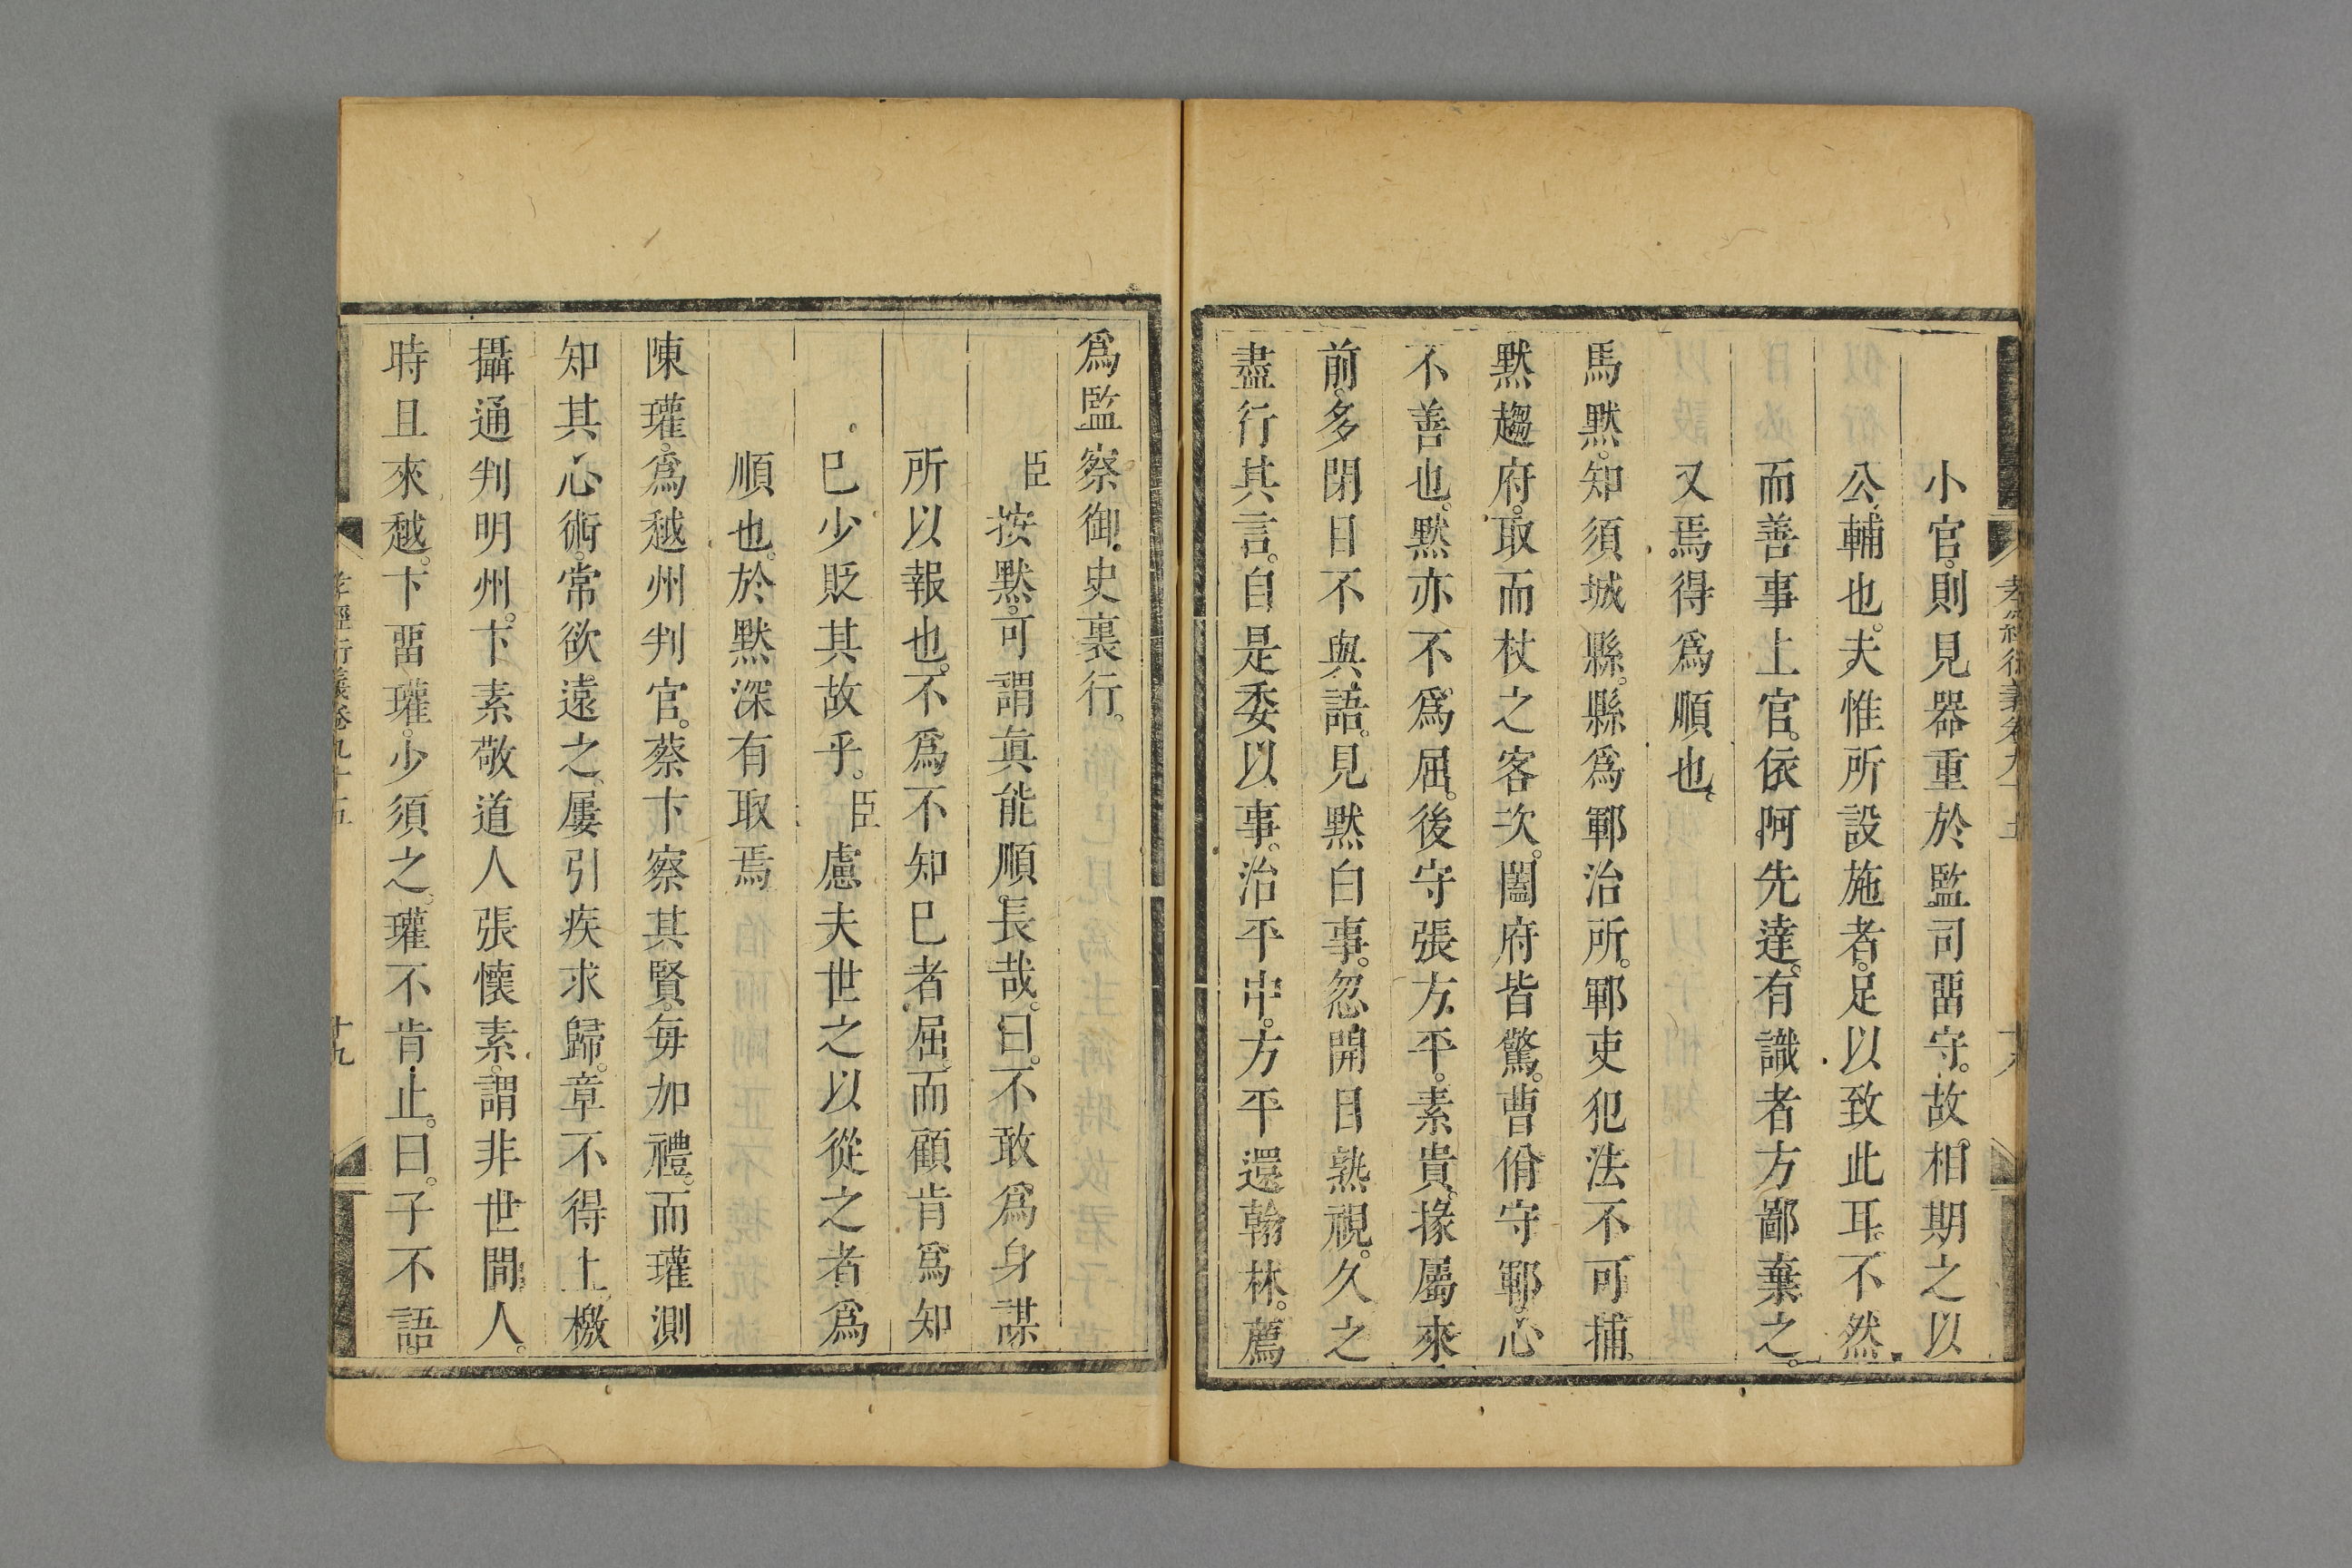 小官。則見器重於監司畱守。故相期之以
公輔也。夫惟所設施者。足以致此耳。不然
而善事上官。依阿先達。有識者方鄙棄之。
又焉得爲順也。
馬默。知須城縣。縣爲鄆治所。鄆吏犯法不可捕。
默趨府。取而杖之客次。闔府皆驚。曹佾守鄆。心
不善也。默亦不爲屈。後守張方平。素貴。掾屬來
前。多閉目不與語。見默白事。忽開目熟視。久之
盡行其言。自是委以事。治平中。方平還翰林。薦
爲監察御史裏行。
臣按默。可謂眞能順長哉。曰。不敢爲身謀
所以報也。不爲不知巳者屈。而顧肯爲知
巳少貶其故乎。臣慮夫世之以從之者爲
順也。於默深有取焉
陳瓘。爲越州判官。蔡卞察其賢。每加禮。而瓘測
知其心術。常欲遠之。屢引疾求歸。章不得上。檄
攝通判明州。卞素敬道人張懷素。謂非世間人。
時且來越。卞畱瓘。少須之。瓘不肯止。曰。子不語。
孝經衍義卷九十五
十九